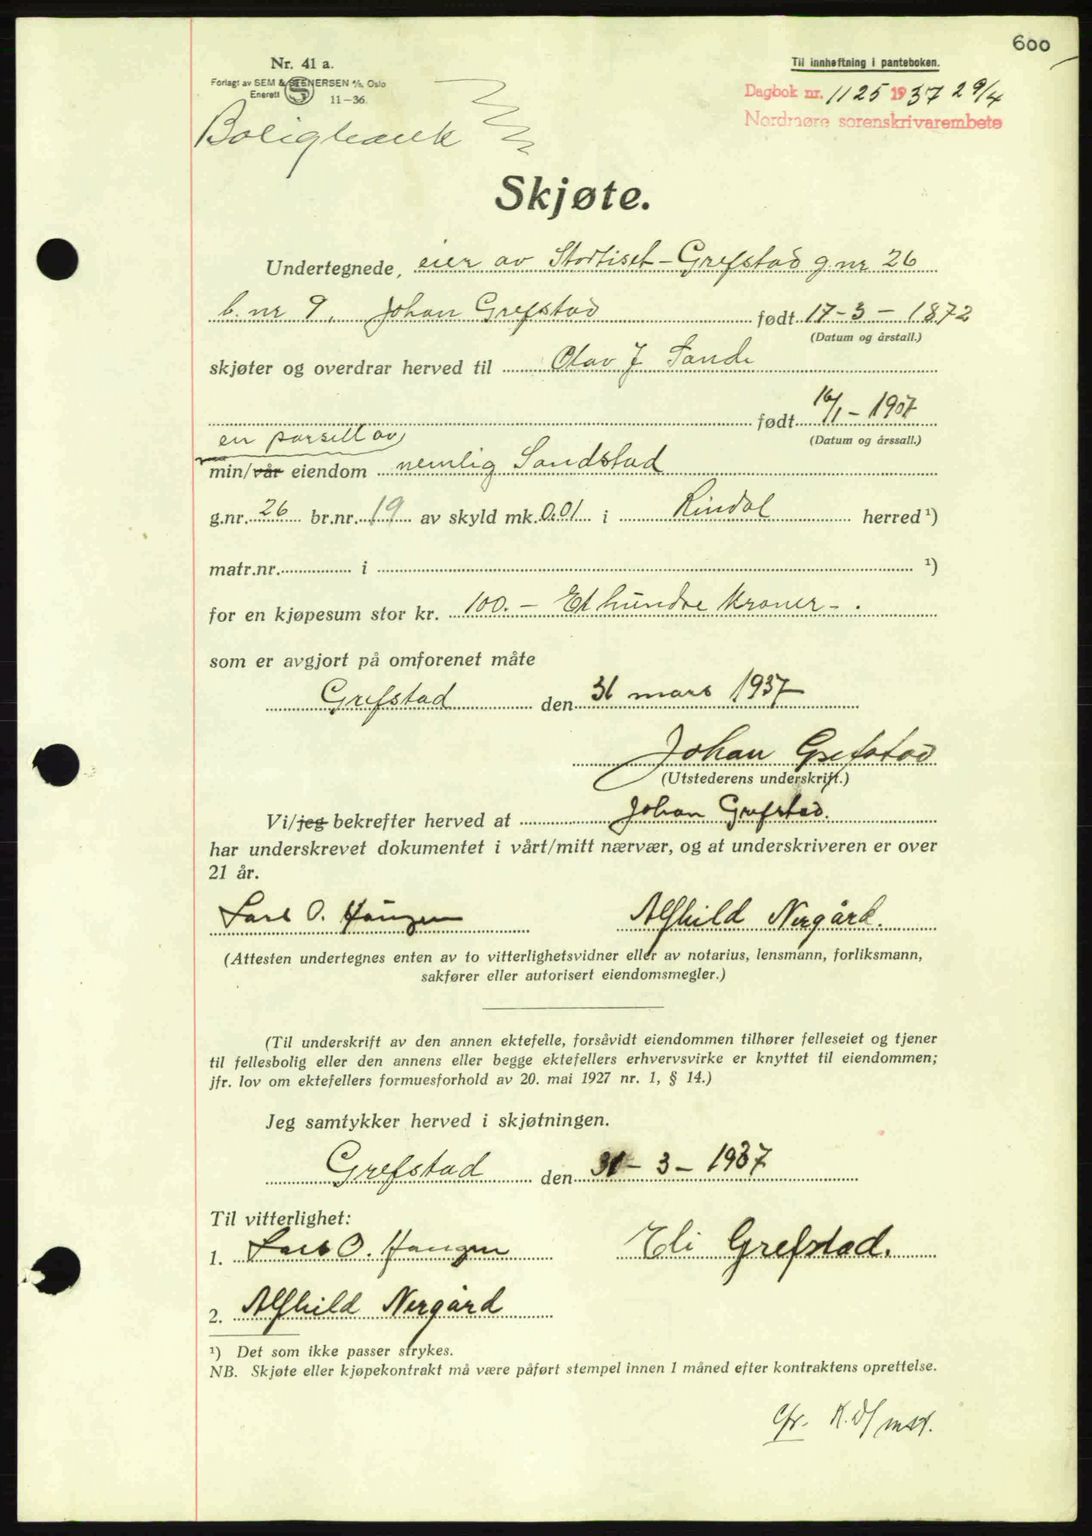 600
Nr. 41 a.
Forlagt av SEM & STENERSEN A/S, Oslo
Enerett 11-36
Til innheftning i panteboken.
Dagbok nr. 1125 1937 29/4
Nordmøre sorenskrivarembete
Boligbank
Skjøte.
Undertegnede, eier av Stortiset-Grefstad g nr 26
b. nr 9, Johan Grefstad født 17-3-1872
(Datum og årstall.)
skjøter og overdrar herved til Olav J Sande
født 16/1-1907
(Datum og årssall.)
en parsell av
min/vår eiendom nemlig Sandstad
g.nr. 26 br.nr. 19 av skyld mk. 0.01 i Rindal herred ¹)
matr.nr. i ¹)
for en kjøpesum stor kr. 100.- Et hundre kroner-.
som er avgjort på omforenet måte
Grefstad den 31 mars 1937
Johan Grefstad
(Utstederens underskrift.)
Vi/jeg bekrefter herved at Johan Grefstad.
har underskrevet dokumentet i vårt/mitt nærvær, og at underskriveren er over
21 år.
Lars O. Haugen Alfhild Nergård.
(Attesten undertegnes enten av to vitterlighetsvidner eller av notarius, lensmann, forliksmann,
sakfører eller autorisert eiendomsmegler.)
(Til underskrift av den annen ektefelle, forsåvidt eiendommen tilhører felleseiet og tjener
til fellesbolig eller den annens eller begge ektefellers erhvervsvirke er knyttet til eiendommen;
jfr. lov om ektefellers formuesforhold av 20. mai 1927 nr. 1, § 14.)
Jeg samtykker herved i skjøtningen.
Grefstad den 31-3-1937
Til vitterlighet:
1. Lars O. Haugen Eli Grefstad.
2. Alfhild Nergård
¹) Det som ikke passer strykes.
NB. Skjøte eller kjøpekontrakt må være påført stempel innen 1 måned efter kontraktens oprettelse.